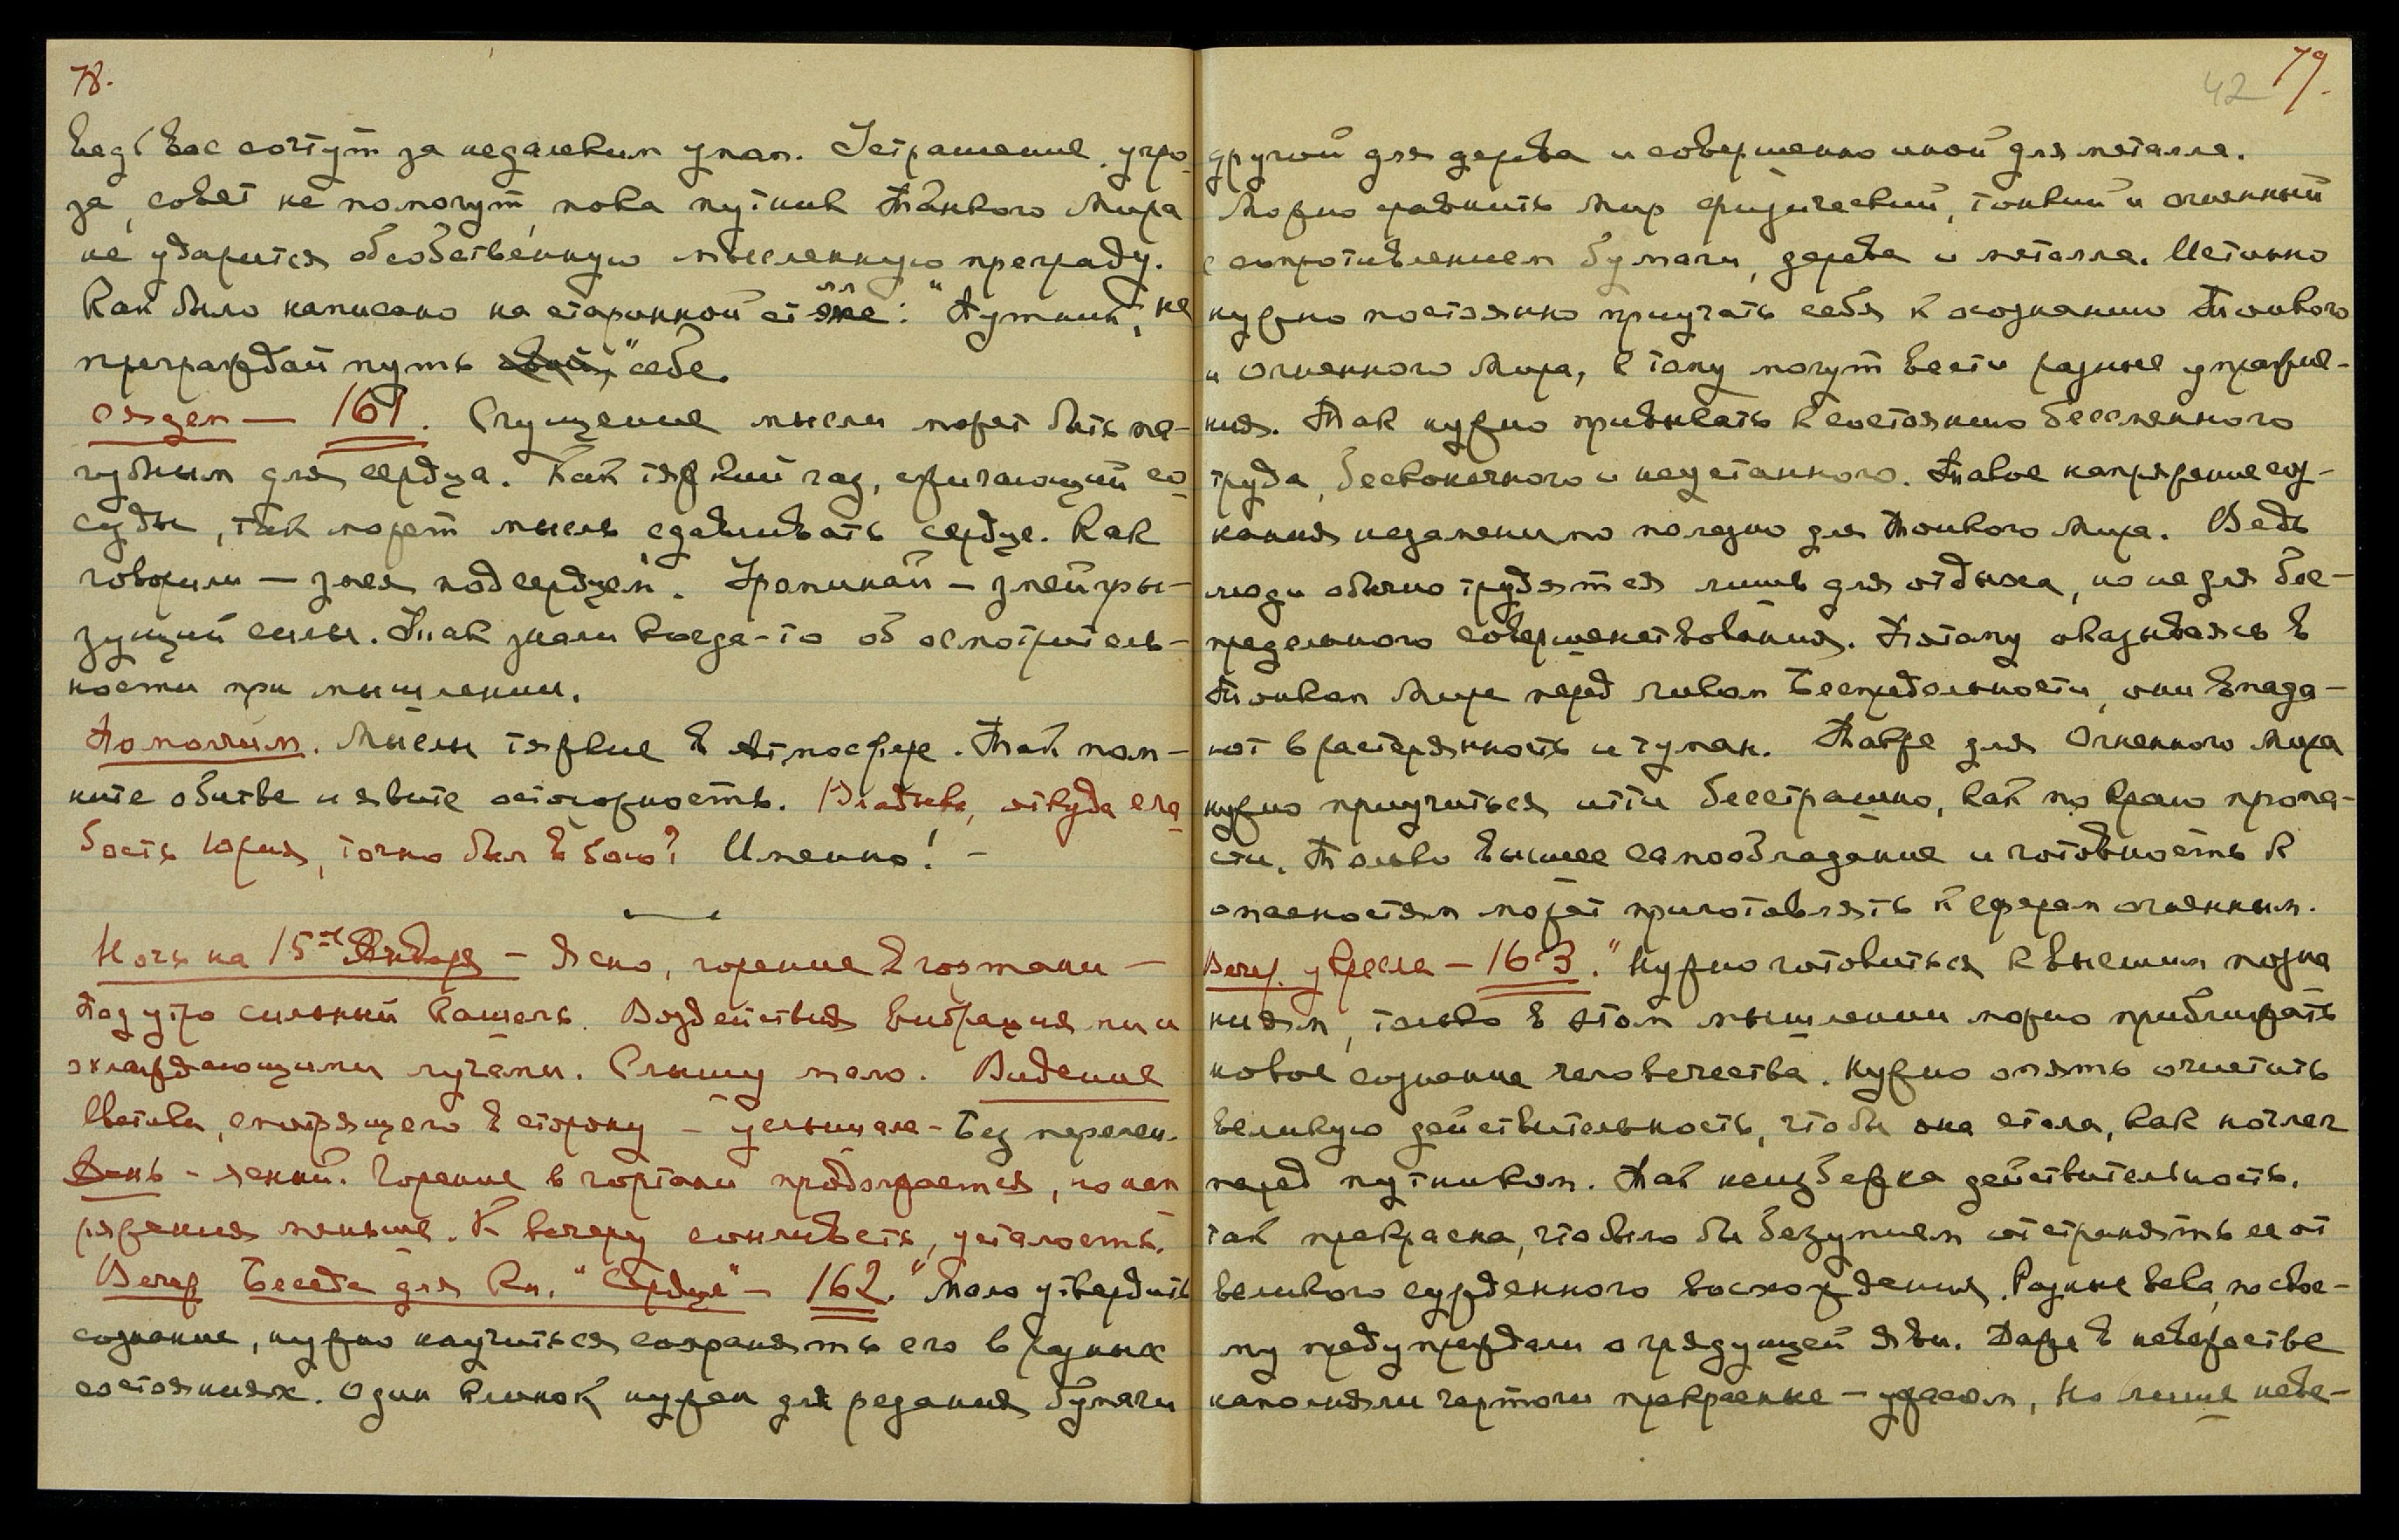 78.
Ведь Вас сочтут за недалеким умом. Устрашение, угро-
за, совет не помогут, пока путник Тонкого Мира
не ударится об собственную мысленную преграду.
Как было написано на старинной стене: "Путник, не
преграждай путь себе."
161. Сгущение мысли может быть па-
губным для сердца. Как тяжкий газ, сжигающий со-
суды, так может мысль сдавливать сердце. Как
говорили — змея под сердцем. Храпинай — змей гры-
зущий силы. Так знали когда-то об осмотритель-
ности при мышлении.
Пополуд. Мысли тяжкие в атмосфере. Так пом-
ните о битве и явите осторожность. Владыка, откуда сла-
бость Юрия, точно был в бою? Именно! —
Ночь на 15ое Января — Ясно, горение в гортани —
Под утро сильный кашель. Воздействия вибрациями и
охлаждающими лучами. Слышу мало. Видение
смотрящего в сторону — услышала — Без перемен.
День — ясный. Горение в гортани продолжается, но нап
ряжения меньше. К вечеру сонливость, усталость.
Вечер Беседа для Кн. "Сердце" — 162. "Мало утвердить
сознание, нужно научиться сохранять его в разных
состояниях. Один клинок нужен для резания бумаги
42 79.
другой для дерева и совершенно иной для металла.
Можно сравнить Мир физический, тонкий и огненный
с сопротивлением бумаги, дерева и металла. Истинно
нужно постоянно приучать себя к осознанию Тонкого
и Огненного Мира, к тому могут вести разные упражне-
ния. Так нужно привыкать к состоянию бессменного
труда, бесконечного и неустанного. Такое напряжение соз-
нания незаменимо полезно для Тонкого Мира. Ведь
люди обычно трудятся лишь для отдыха, но не для бес-
предельного совершенствования. Потому оказываясь в
Тонком Мире перед ликом Беспредельности, они впада-
ют в растерянность и туман. Также для Огненного Мира
нужно приучиться идти бесстрашно, как по краю пропа-
сти. Только высшее самообладание и готовность к
опасностям может приготовлять к сферам огненным.
Вечер. у кресла — 163. "Нужно готовиться к высшим позна
ниям, только в этом мышлении можно приближать
новое сознание человечества. Нужно опять очистить
великую действительность, чтобы она стала, как ночлег
перед путником. Так неизбежна действительность,
так прекрасна, что было бы безумием отстранять ее от
великого сужденного восхождения. Разные века по свое-
му предупреждали о грядущей яви. Даже в невежестве
наполняли чертоги прекрасные — ужасом, Но лишь неве-